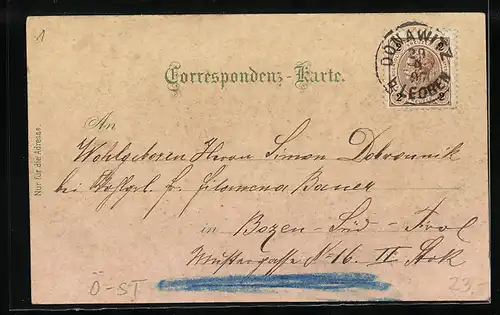 1
DONAWITZ
B. LEOBEN
Correspondenz-Karte.
An
Wohlgeboren Herrn Simon Dobrounik
bei Filomena Bauer
in Bozen - Süd - Tirol
Mustergasse No 16. II Stok
Nur für die Adresse.
Ö-ST
23,-